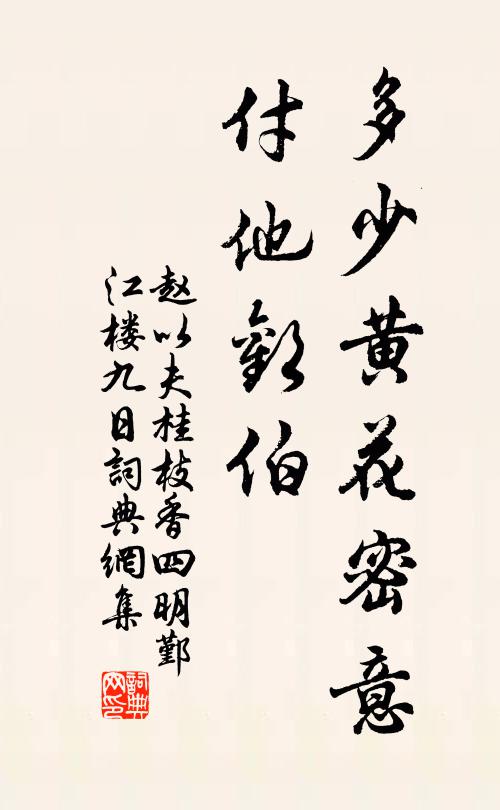 多少黄花密意
付他歡伯
赵以夫桂枝香四明鄞
江楼九日詞典網集
詞典
网印